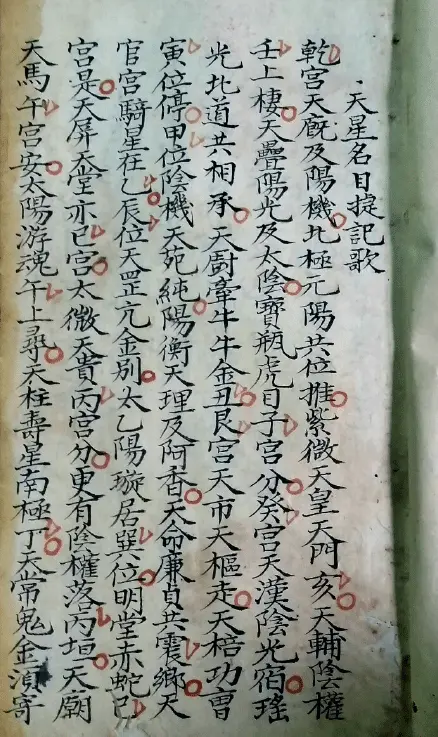 天星名目捷記歌
乾宮天廐及陽機北極元陽共位推紫微天皇天門亥天輔陰權
壬上棲天壘陽光及太陰寶瓶虎目子宮分癸宮天漢陰光宿瑤
光北道共相承天厨牽牛牛金丑艮宮天市天樞走天棓功曹
寅位停甲位陰機天苑純陽衡天理及阿香天命廉貞共震鄉天
官宮騎星在乙辰位天罡亢金別太乙陽璇居巽位明堂赤蛇巳
宮是天屏天堂亦巳宮太微天貴丙宮分更有陰權落丙垣天廟
天馬午宮安太陽游魂午上尋天柱壽星南極丁天常鬼金湏寄